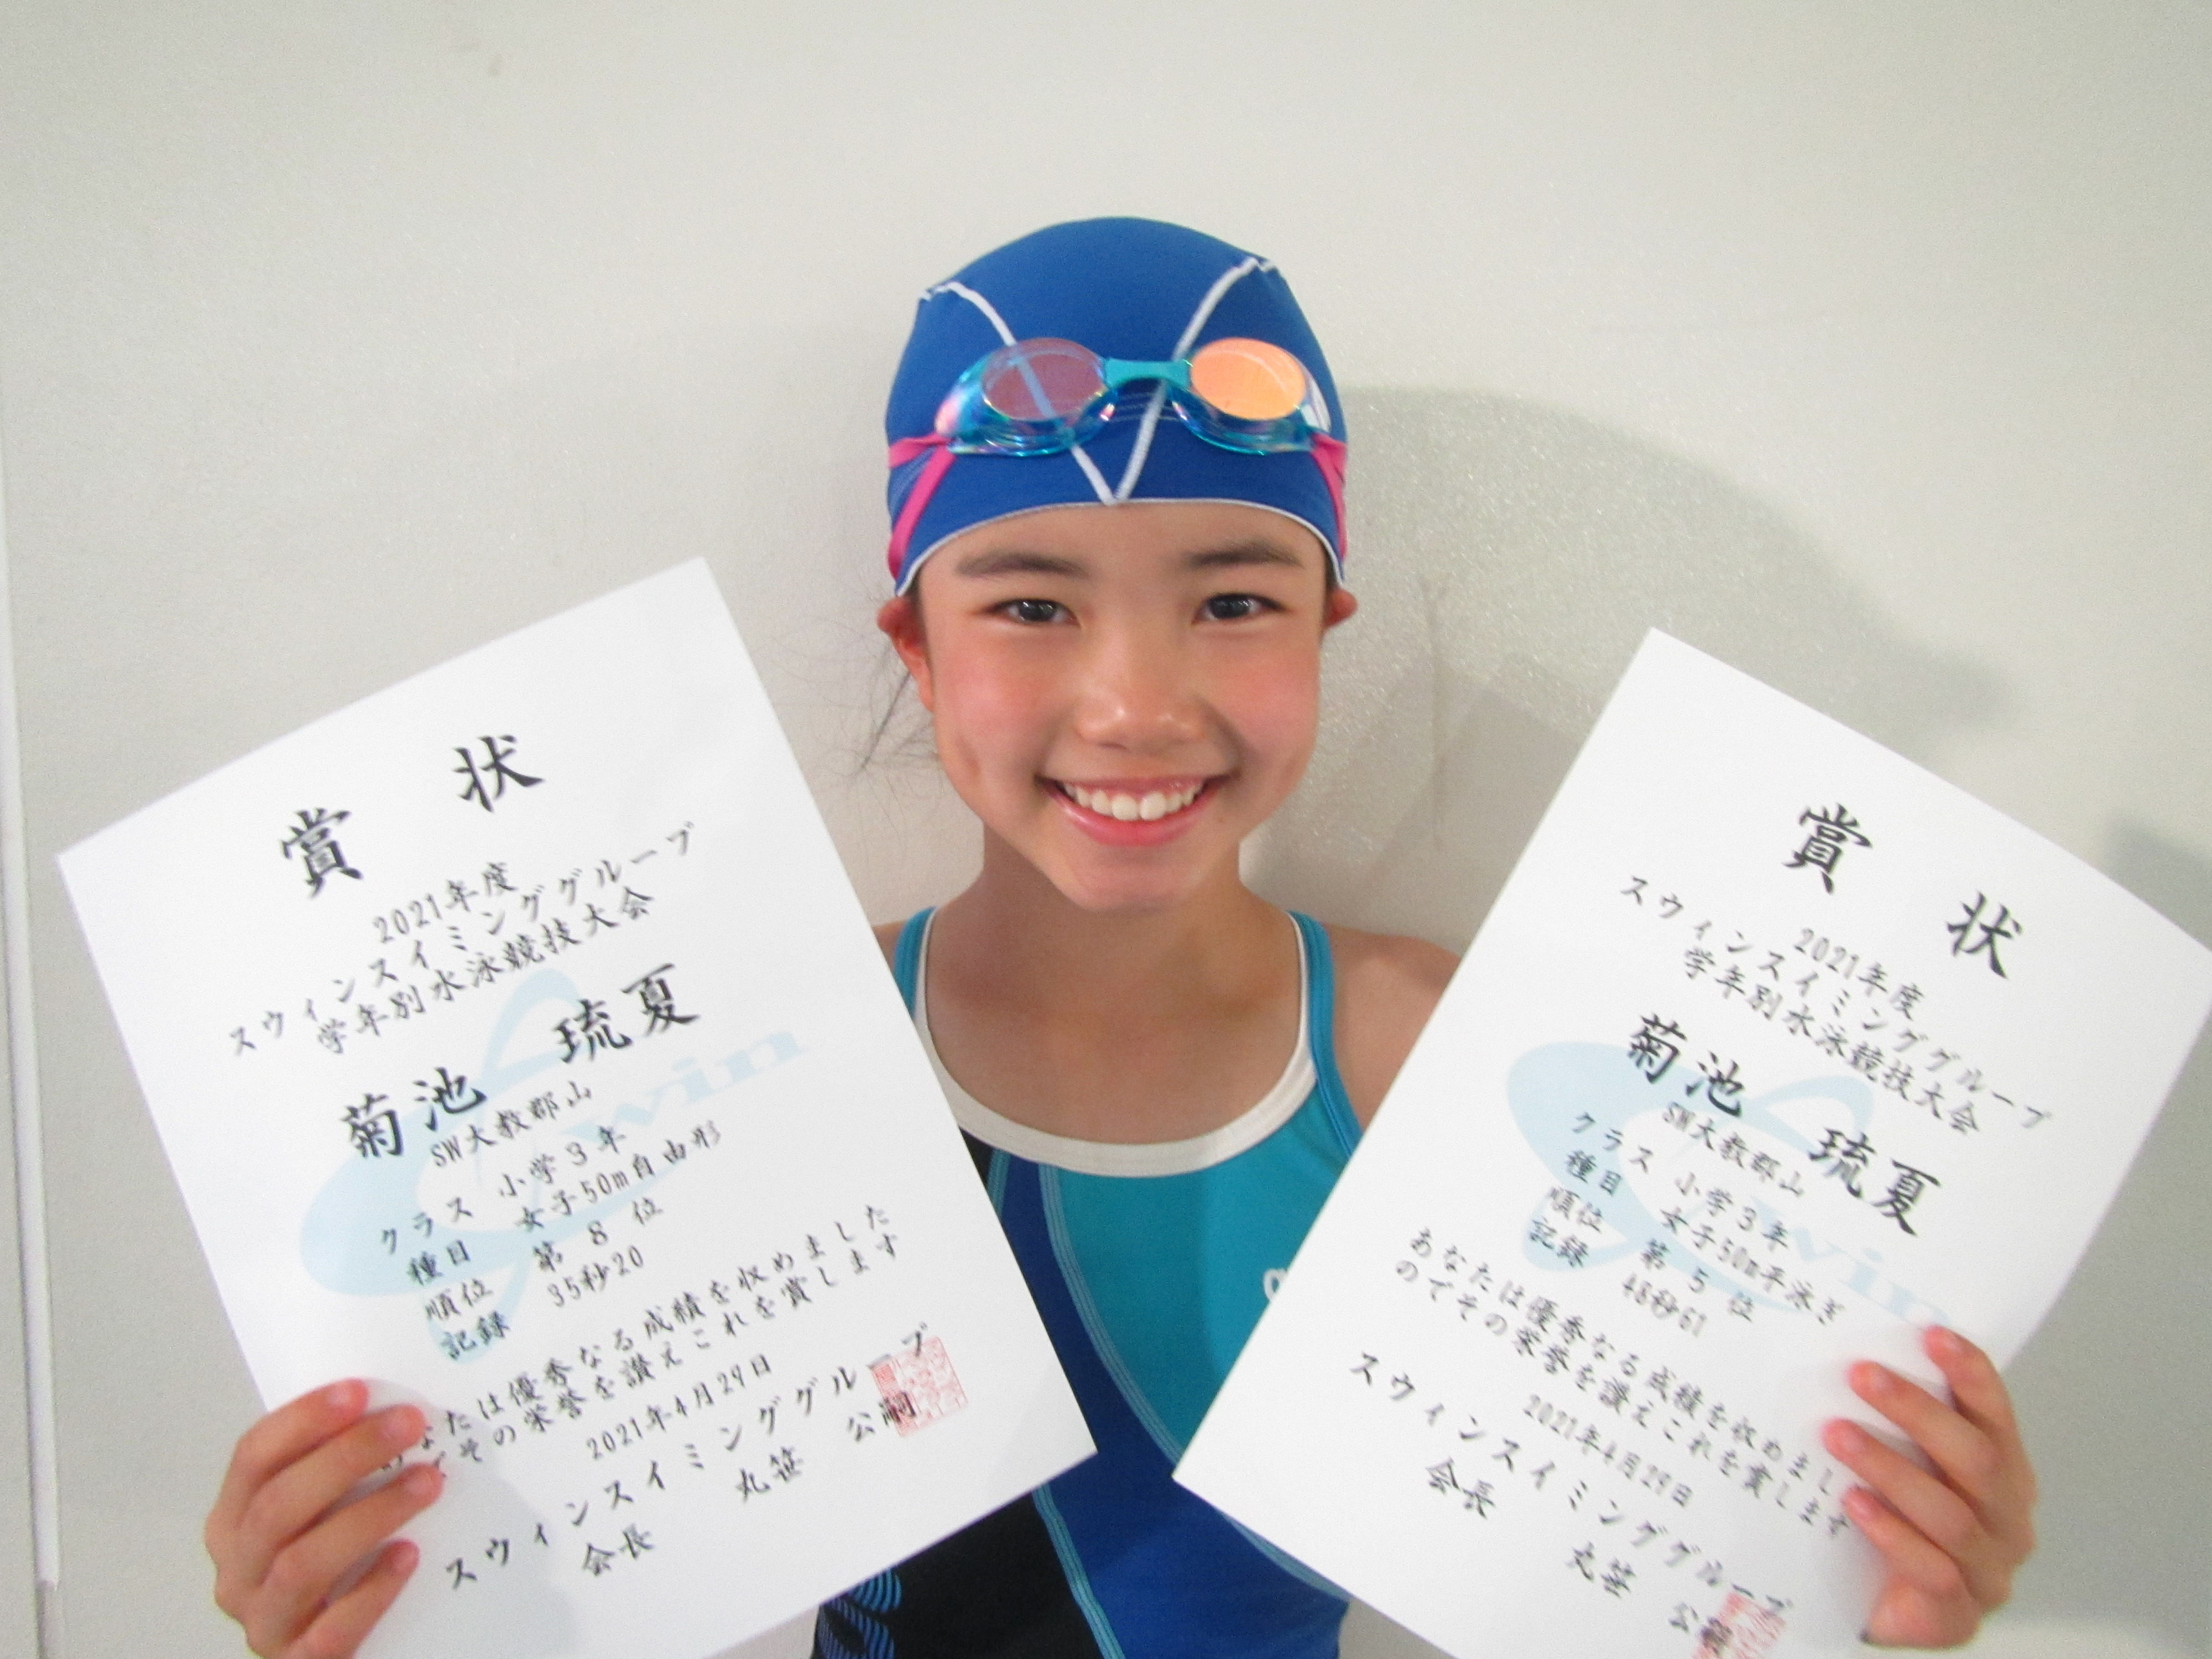 賞 状
2021年度
スウィンスイミンググループ
学年別水泳競技大会
菊池 琉夏
SW大教郡山
クラス 小学3年
種目 女子50m自由形
順位 第 8 位
記録 35秒20
たは優秀なる成績を収めました
その栄誉を讃えこれを賞します
2021年4月29日
スウィンスイミンググループ
会長 丸笹 公嗣
賞 状
2021年度
スウィンスイミンググループ
学年別水泳競技大会
菊池 琉夏
SW大教郡山
クラス 小学3年
種目 女子50m平泳ぎ
順位 第 5 位
記録 48秒61
あなたは優秀なる成績を収めまし
のでその栄誉を讃えこれを賞します
2021年4月29日
スウィンスイミンググループ
会長 丸笹 公
win
win